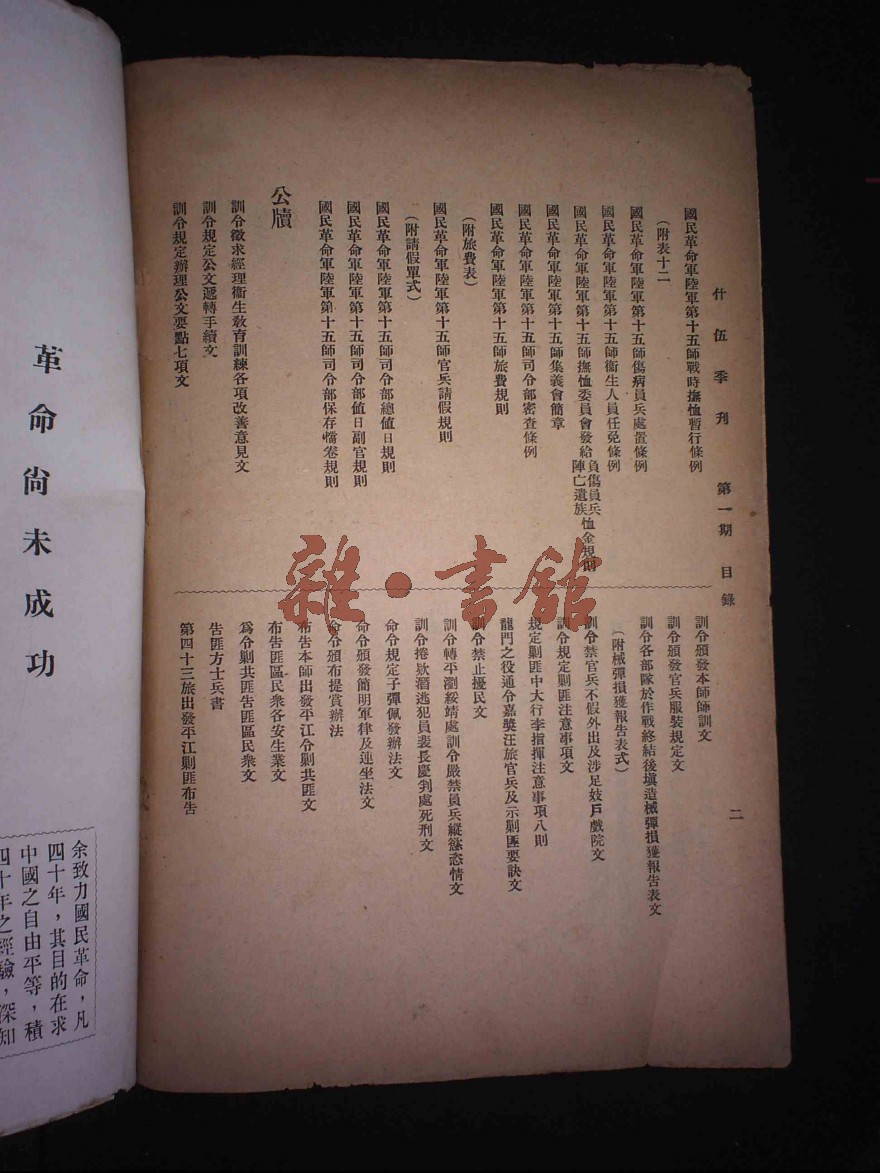 什伍季刊 第一期 目錄 二
國民革命軍陸軍第十五師戰時撫恤暫行條例
(附表十二)
國民革命軍陸軍第十五師傷病員兵處置條例
國民革命軍陸軍第十五師衞生人員任免條例
國民革命軍陸軍第十五師撫恤委員會發給負傷員兵陣亡遺族恤金規則
國民革命軍陸軍第十五師集義會簡章
國民革命軍陸軍第十五師司令部密查條例
國民革命軍陸軍第十五師旅費規則
(附旅費表)
國民革命軍陸軍第十五師官兵請假規則
(附請假單式)
國民革命軍陸軍第十五師司令部總值日規則
國民革命軍陸軍第十五師司令部值日副官規則
國民革命軍陸軍第十五師司令部保存檔卷規則
公牘
訓令徵求經理衞生敎育訓練各項改善意見文
訓令規定公文遞轉手續文
訓令規定辦理公文要點七項文
訓令頒發本師師訓文
訓令頒發官兵服裝規定文
訓令各部隊於作戰終結後塡造械彈損獲報告表文
(附械彈損獲報告表式)
訓令禁官兵不假外出及涉足妓戶戲院文
訓令規定剿匪注意事項文
規定剿匪中大行李指揮注意事項八則
龍門之役通令嘉獎汪旅官兵及示剿匪要訣文
訓令禁止擾民文
訓令轉平瀏綏靖處訓令嚴禁員兵縱慾恣情文
訓令捲欵潛逃犯員裴長慶判處死刑文
命令規定子彈佩發辦法文
命令頒發簡明軍律及連坐法文
命令頒布提賞辦法
布告本師出發平江令剿共匪文
布告匪區民衆各安生業文
爲令剿共匪告匪區民衆文
告匪方士兵書
第四十三旅出發平江剿匪布告
雜·書館
革命尚未成功
余致力國民革命,凡
四十年,其目的在求
中國之自由平等,積
四十年之經驗,深知